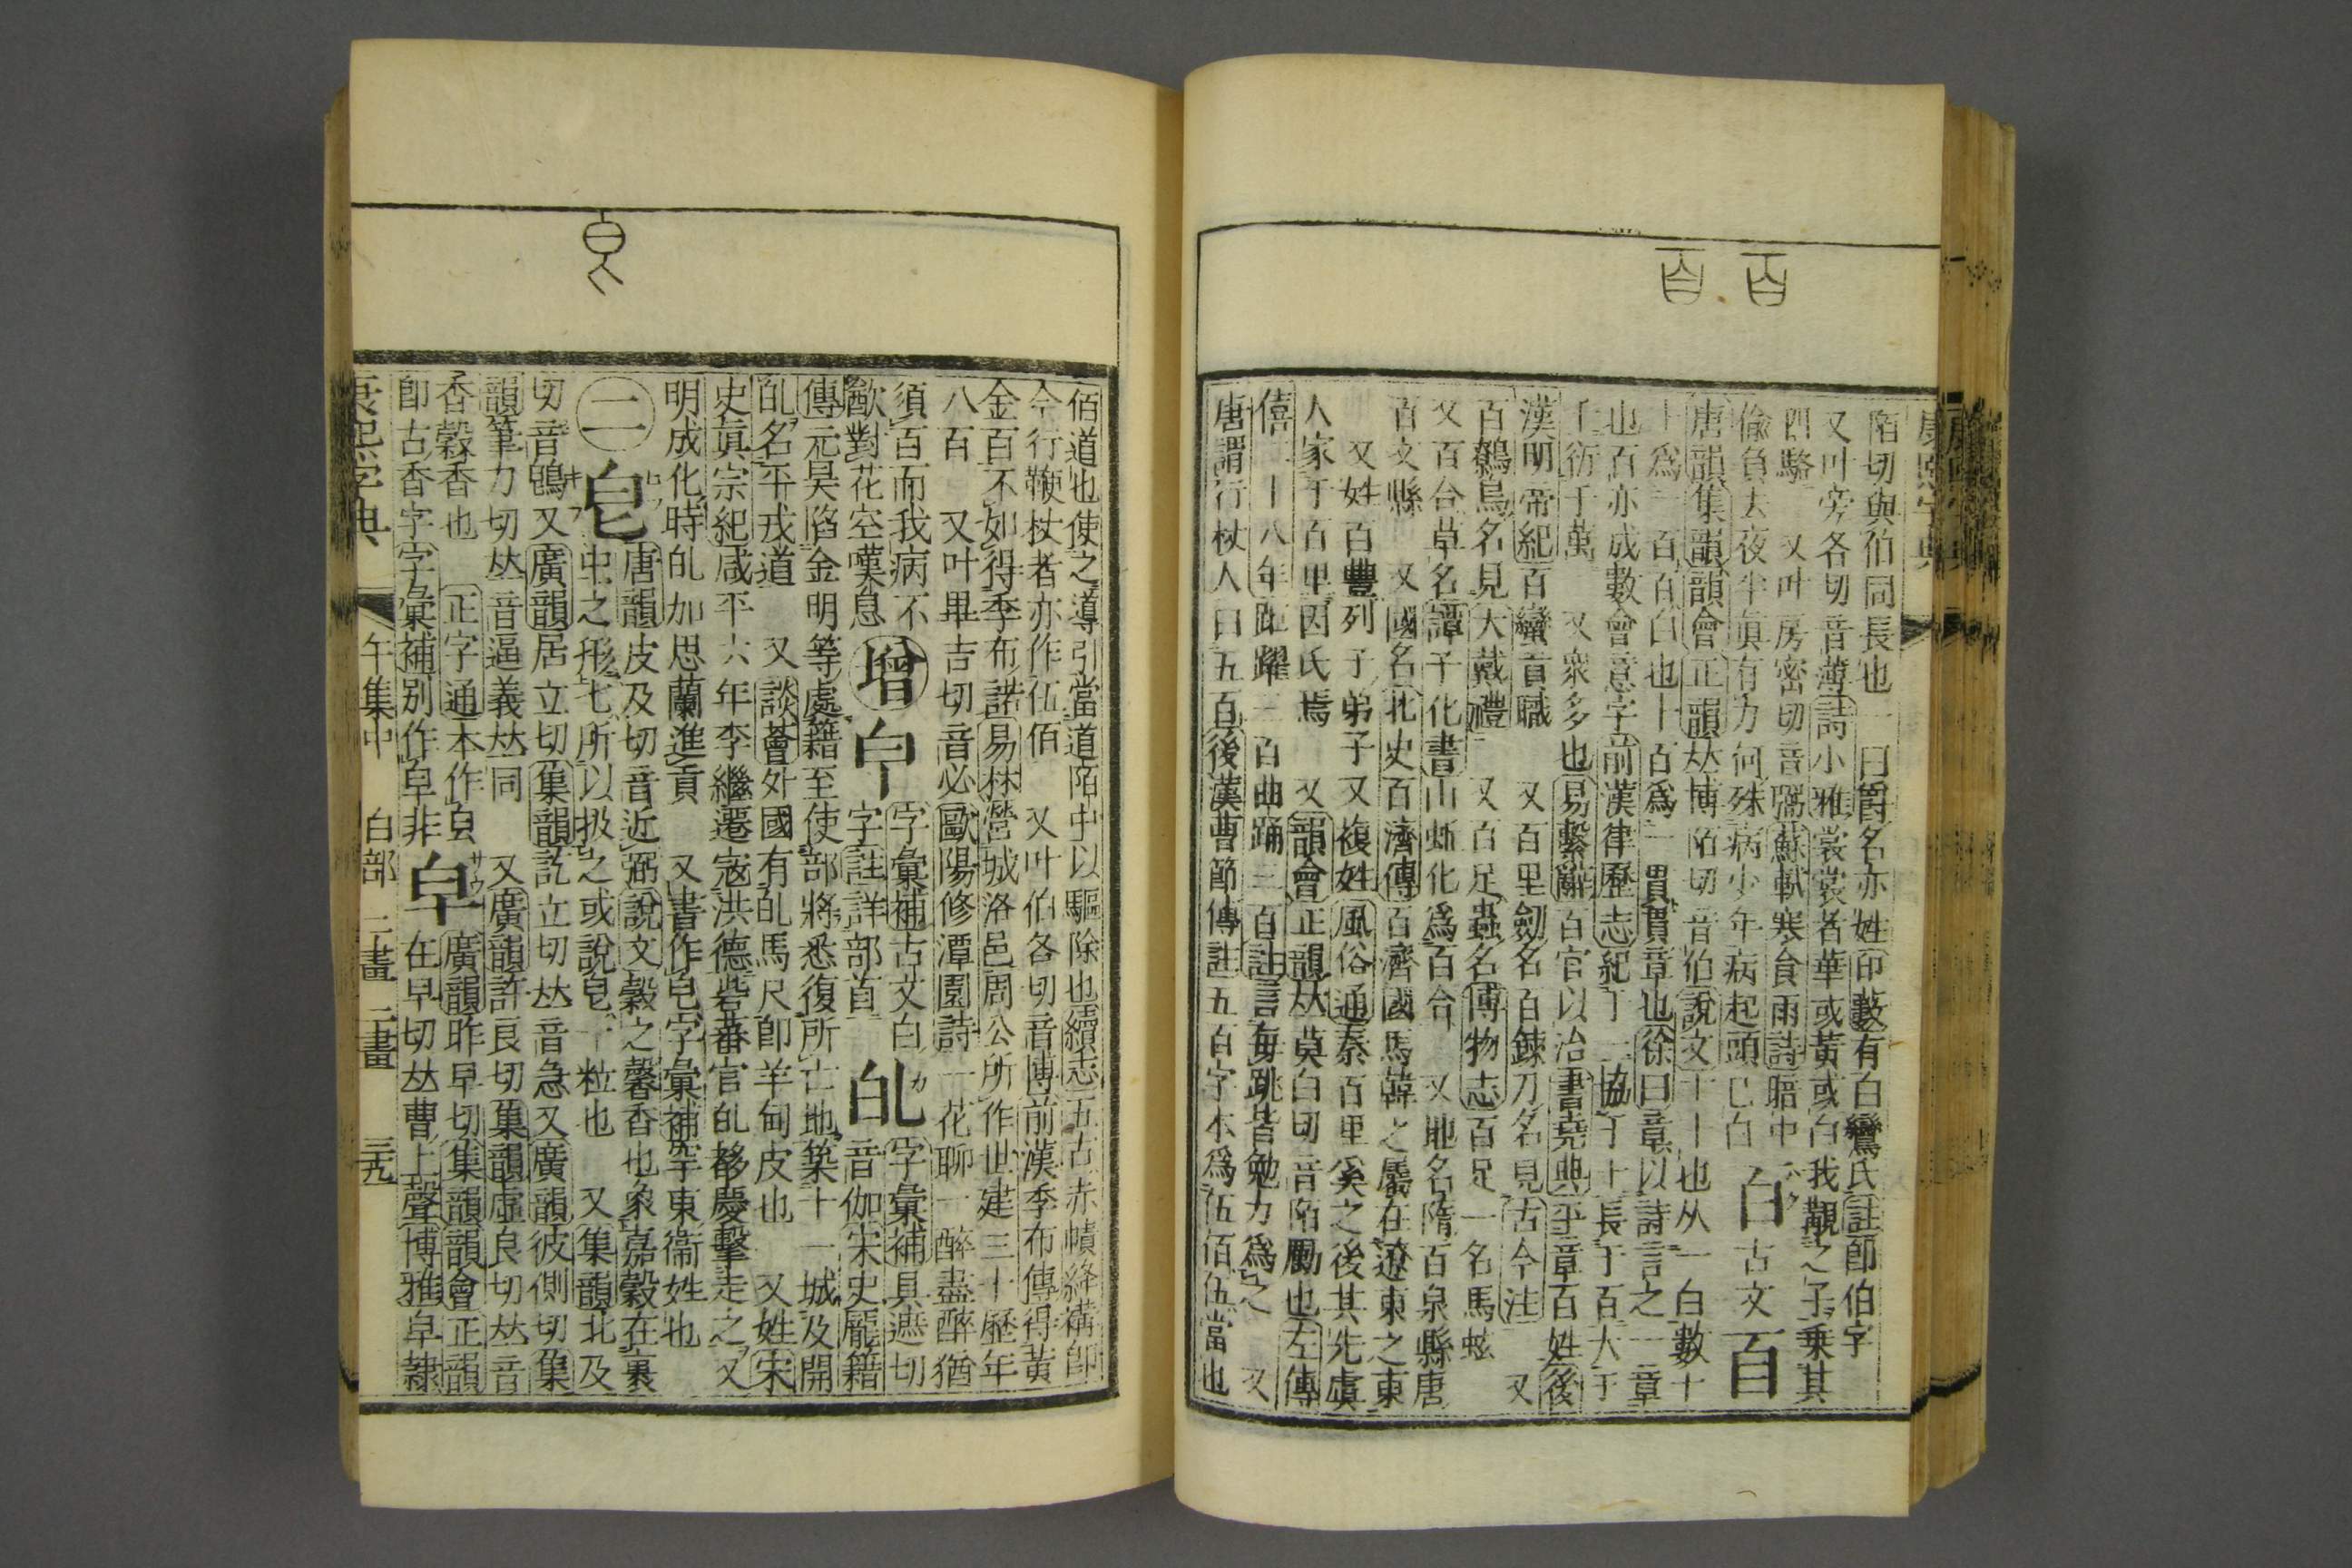 百 百
康熙字典
陌切與伯同長也一曰爵名亦姓印藪有白鸞氏註卽伯字
又叶旁各切音薄詩小雅裳裳者華或黃或白我覯之子乗其
四駱 又叶房密切音弼蘇軾寒食雨詩暗中
偷負去夜半眞有力何殊病少年病起頭已白
白 ハク 古文 百
唐韻集韻韻會正韻𠀤博陌切音伯說文十十也从一白數十
十爲一百百白也十百爲一貫貫章也徐曰章以詩言之一章
也百亦成數會意字前漢律歷志紀于一協于十長于百大于
千衍于萬 又衆多也易繫辭百官以治書堯典平章百姓後
漢明帝紀百蠻貢職 又百里劒名百鍊刀名見古今注 又
百鷯鳥名見大戴禮 又百足蟲名博物志百足一名馬蚿
又百合草名譚子化書山蚯化爲百合 又地名隋百泉縣唐
百丈縣 又國名北史百濟傳百濟國馬韓之屬在遼東之東
又姓百豐列子弟子又複姓風俗通秦百里奚之後其先虞
人家于百里因氏焉 又韻會正韻𠀤莫白切音陌勵也左傳
僖二十八年距躍三百曲踊三百註言每跳皆勉力爲之 又
唐謂行杖人曰五百後漢曹節傳註五百字本爲伍伯伍當也
皀
伯道也使之導引當道陌中以驅除也續志五百赤幘絳褠卽
今行鞭杖者亦作伍佰 又叶伯各切音博前漢季布傳得黃
金百不如得季布諾易林營城洛邑周公所作世建三十歷年
八百 又叶畢吉切音必歐陽修潭園詩一花聊一醉盡醉猶
須百而我病不
歠對花空嘆息
增 白 字彙補古文白
字註詳部首
癿 カ 字彙補具遮切
音伽宋史龎籍
傳元昊陷金明等處籍至使部將悉復所亡地築十一城及開
癿名平戎道 又談薈外國有癿馬尺卽羊甸皮也 又姓宋
史眞宗紀咸平六年李繼遷寇洪德砦蕃官癿移慶擊走之又
明成化時癿加思蘭進貢 又書作皀字彙補罕東衞姓也
二 皀 ヒフ 唐韻皮及切音近弼說文穀之馨香也象嘉穀在裹
中之形匕所以扱之或說皀一粒也 又集韻北及
切音鵖 又廣韻居立切集韻訖立切𠀤音急又廣韻彼側切集
韻筆力切𠀤音逼義𠀤同 又廣韻許良切集韻虛良切𠀤音
香穀香也 正字通本作皀
卽古香字字彙補別作皁非
皁 サウ 廣韻昨早切集韻韻會正韻
在早切𠀤曹上聲博雅皁隷
康熙字典 午集中 白部 一畫 二畫 三九